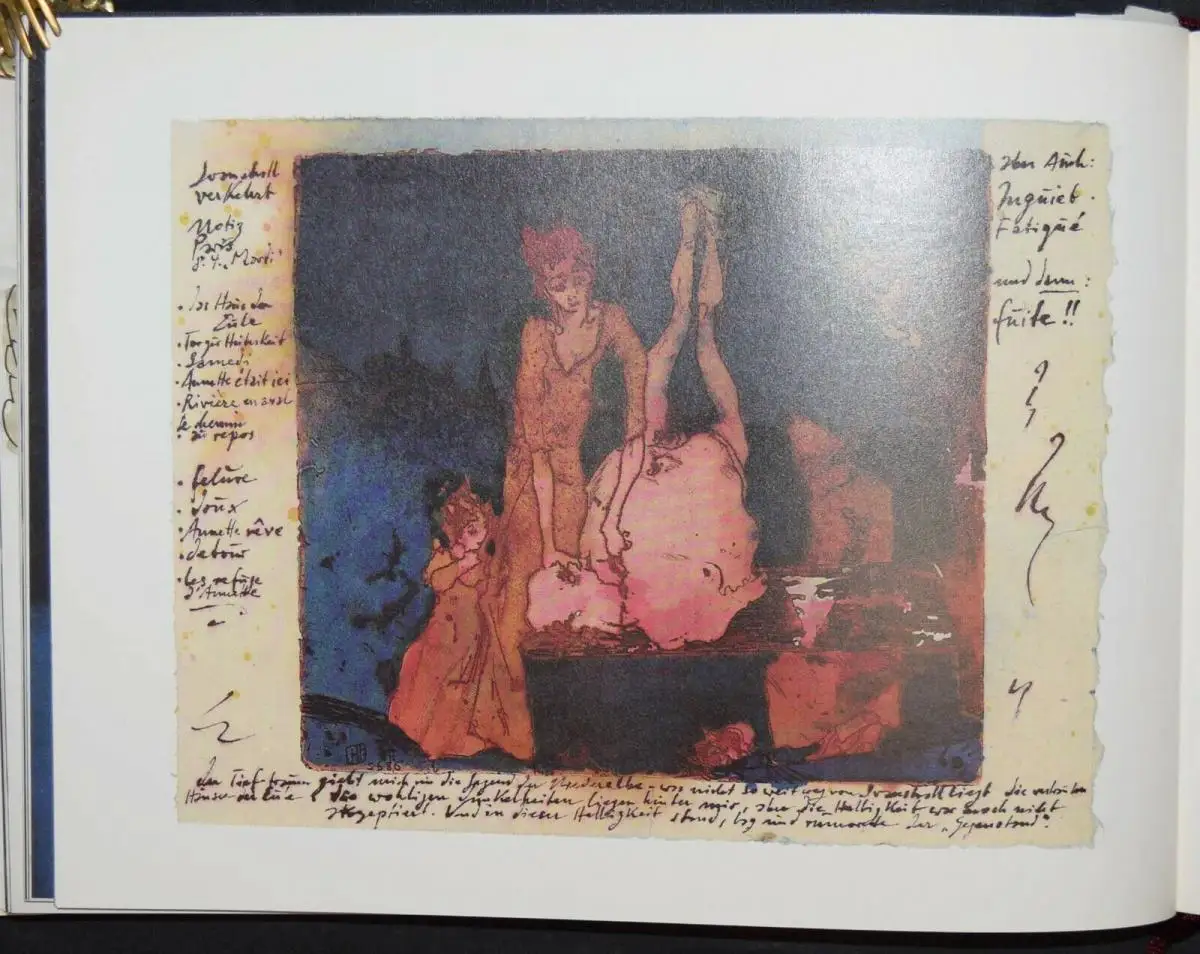 Svanshall
verkehrt
Notiz
Paris
"Mardi"
• Das Haus der
Eule
• Tor zur Heiterkeit
• Samedi
• Annette était ici
• Rivière en aval
le chemin
• au repos
• felure
• doux
• Annette rêve
• detour
• Les refuge
d'Annette
Aber Auch:
Inquiet.
Fatigué
und dann:
fuite!!
5586
Der Tief traum mich in die Gegend der Niederelbe, was nicht so weit weg von Svanshall liegt die
Häuser der Eule die wohligen Dunkelheiten liegen hinter mir, aber die Helligkeit war noch nicht
akzeptiert. Und in dieser Helligkeit stand, lag und rumorte der „Gegenstand".